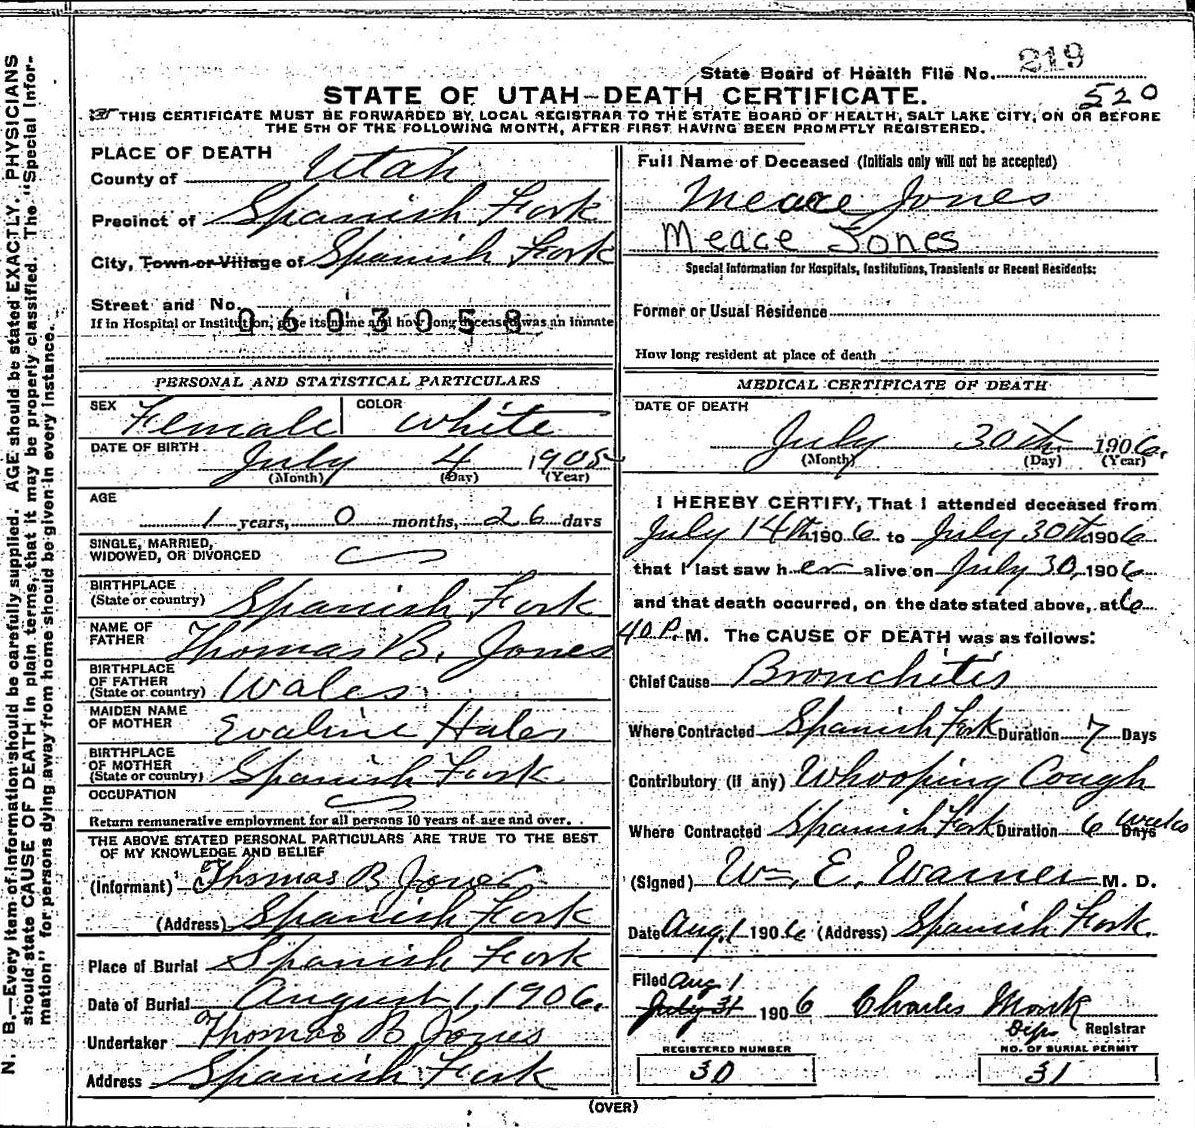 State Board of Health File No. 219
STATE OF UTAH–DEATH CERTIFICATE.
520
☞ THIS CERTIFICATE MUST BE FORWARDED BY LOCAL REGISTRAR TO THE STATE BOARD OF HEALTH, SALT LAKE CITY, ON OR BEFORE
THE 5TH OF THE FOLLOWING MONTH, AFTER FIRST HAVING BEEN PROMPTLY REGISTERED.
PLACE OF DEATH
County of Utah
Precinct of Spanish Fork
City, Town or Village of Spanish Fork
Street and No.
0603058
If in Hospital or Institution, give its name and how long deceased was an inmate
PERSONAL AND STATISTICAL PARTICULARS
SEX Female COLOR White
DATE OF BIRTH July 4 1905
(Month) (Day) (Year)
AGE
1 years, 0 months, 26 days
SINGLE, MARRIED,
WIDOWED, OR DIVORCED
BIRTHPLACE
(State or country) Spanish Fork
NAME OF
FATHER Thomas B. Jones
BIRTHPLACE
OF FATHER
(State or country) Wales
MAIDEN NAME
OF MOTHER Evaline Hales
BIRTHPLACE
OF MOTHER
(State or country) Spanish Fork
OCCUPATION
Return remunerative employment for all persons 10 years of age and over.
THE ABOVE STATED PERSONAL PARTICULARS ARE TRUE TO THE BEST
OF MY KNOWLEDGE AND BELIEF
(Informant) Thomas B Jones
(Address) Spanish Fork
Place of Burial Spanish Fork
Date of Burial August 1, 1906.
Undertaker Thomas B Jones
Address Spanish Fork
Full Name of Deceased (Initials only will not be accepted)
Meace Jones
Meace Jones
Special Information for Hospitals, Institutions, Transients or Recent Residents:
Former or Usual Residence
How long resident at place of death
MEDICAL CERTIFICATE OF DEATH
DATE OF DEATH
July 30th 1906.
(Month) (Day) (Year)
I HEREBY CERTIFY, That I attended deceased from
July 14th 1906 to July 30th 1906
that I last saw her alive on July 30, 1906
and that death occurred, on the date stated above, at 6
40 P. M. The CAUSE OF DEATH was as follows:
Chief Cause Bronchitis
Where Contracted Spanish Fork Duration 7 Days
Contributory (if any) Whooping Cough
Where Contracted Spanish Fork Duration 6 Weeks Days
(Signed) Wm. E. Warner M. D.
Date Aug. 1 1906 (Address) Spanish Fork.
Filed Aug 1
July 31 1906 Charles Monk
Dep Registrar
REGISTERED NUMBER
30
NO. OF BURIAL PERMIT
31
(OVER)
N. B.—Every item of information should be carefully supplied. AGE should be stated EXACTLY. PHYSICIANS
should state CAUSE OF DEATH in plain terms, that it may be properly classified. The "Special Infor-
mation" for persons dying away from home should be given in every instance.